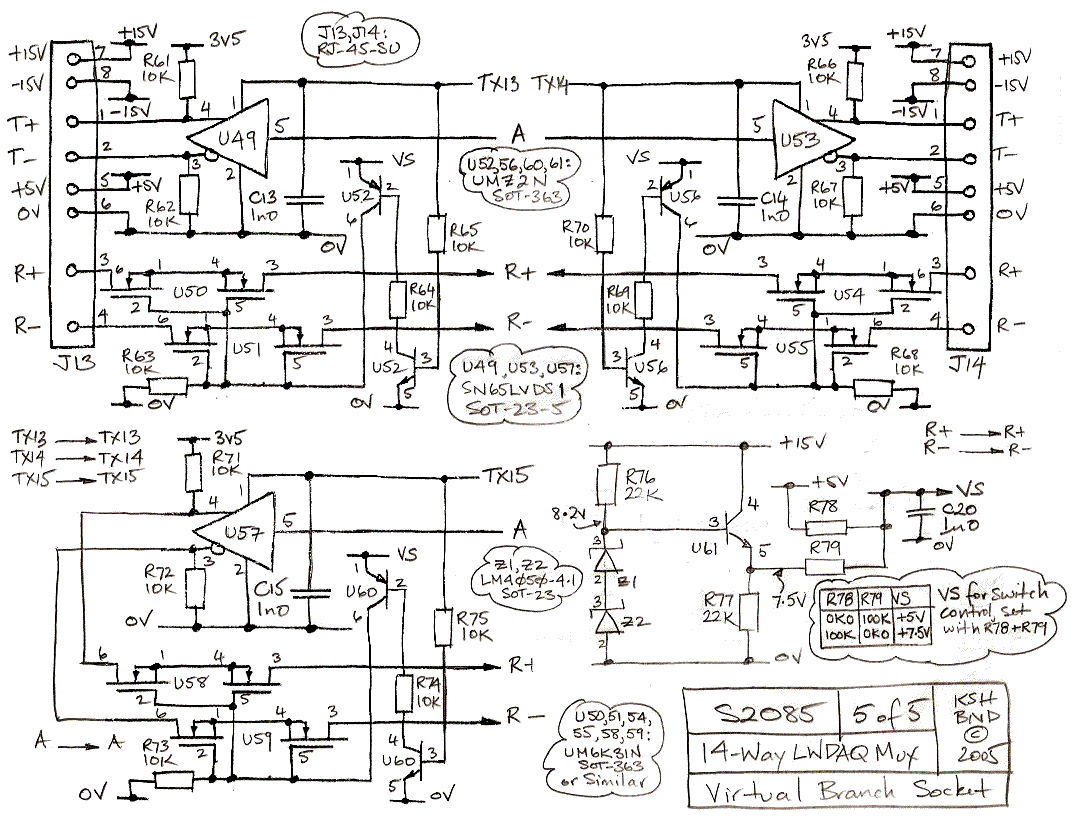 J13, J14:
RJ-45-SU
+15V
7
+15V
3V5
R61
10K
-15V
8
-15V
T+
1
4
1
U49
5
A
TX13
T-
2
3
2
+5V
5
+5V
0V
6
R62
10K
C13
1n0
0V
VS
1
U52
2
6
R65
10K
R+
3
6
1
4
3
R+
2
U50
5
R64
10K
R-
4
6
1
4
3
R-
2
U51
5
J13
R63
10K
0V
U52
4
3
5
0V
U52,56,60,61:
UMZ2N
SOT-363
U49, U53, U57:
SN65LVDS1
SOT-23-5
TX14
3V5
R66
10K
+15V
7
+15V
8
-15V
-15V
1
5
U53
4
1
T+
2
3
2
T-
R67
10K
+5V
5
+5V
6
0V
C14
1n0
0V
VS
1
2
U56
6
R70
10K
R69
10K
3
4
1
6
3
R+
5
U54
2
3
4
1
6
4
R-
5
U55
2
R68
10K
0V
J14
4
3
U56
5
0V
TX13 → TX13
TX14 → TX14
TX15 → TX15
3V5
R71
10K
4
1
U57
5
A
TX15
3
2
R72
10K
C15
1n0
0V
VS
1
U60
2
6
R75
10K
Z1, Z2
LM4050-4.1
SOT-23
6
1
4
3
R+
2
U58
5
R74
10K
6
1
4
3
R-
2
U59
5
A → A
R73
10K
0V
U60
4
3
5
0V
U50,51,54,
55,58,59:
UM6K31N
SOT-363
or Similar
R+ → R+
R- → R-
+15V
R76
22K
8.2V
3
4
U61
5
1
Z1
2
1
Z2
2
R77
22K
7.5V
0V
+5V
R78
R79
VS
C20
1n0
0V
R78 R79 VS
0K0 100K +5V
100K 0K0 +7.5V
VS for Switch
control, set
with R78+R79
S2085 5 of 5 KSH
BND
©
2005
14-Way LWDAQ Mux
Virtual Branch Socket